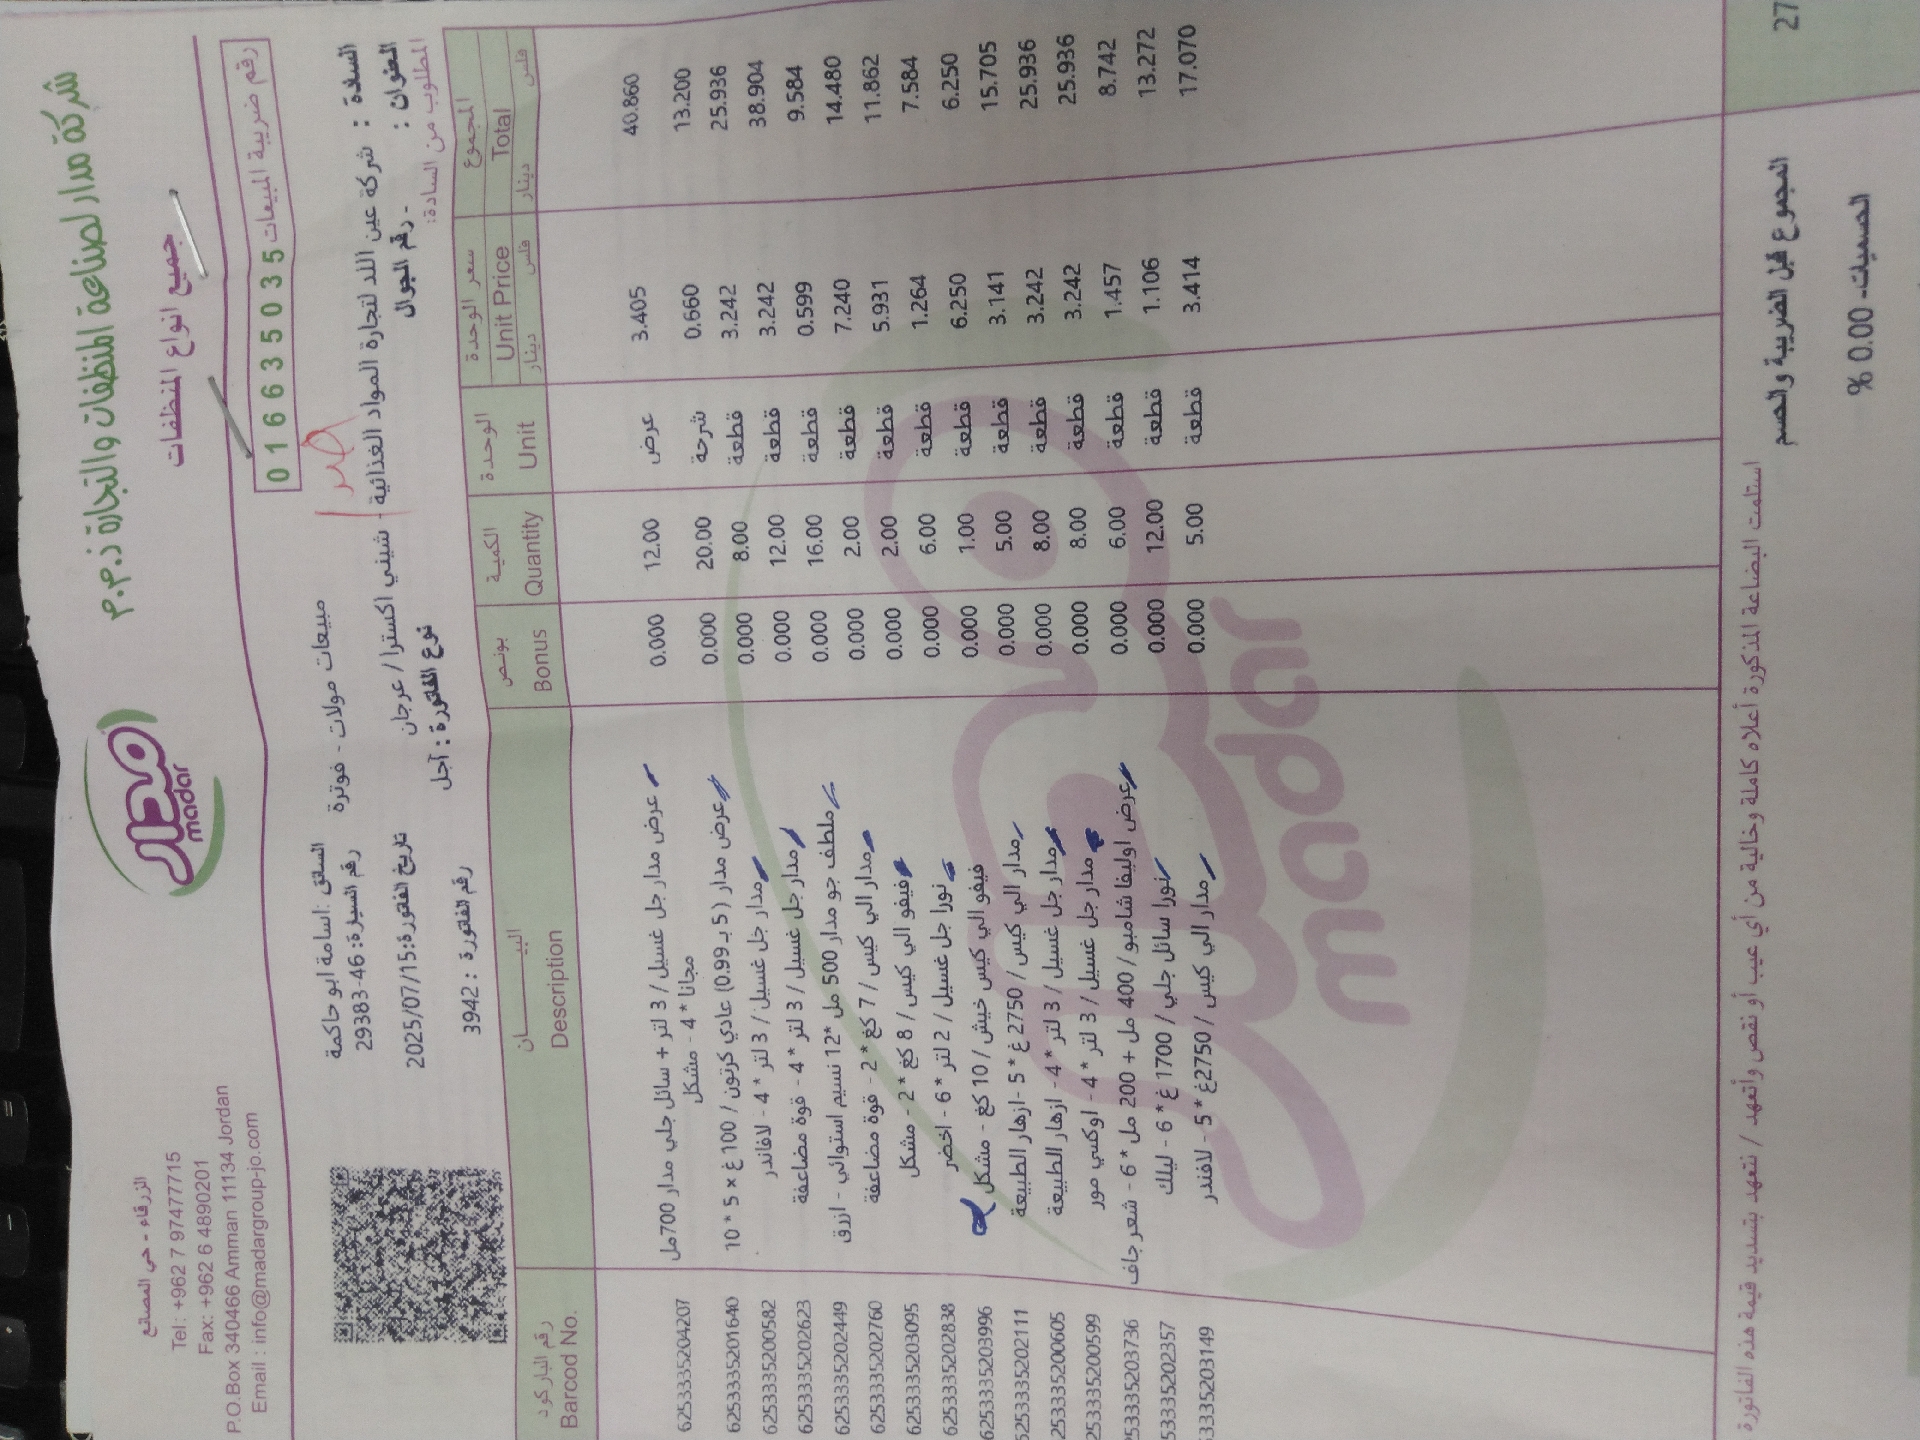 شركة مدار لصناعة المنظفات والتجارة ذ.م.م
جميع انواع المنظفات
مدار
madar
الزرقاء - حي المصانع
Tel: +962 7 97477715
Fax: +962 6 4890201
P.O.Box 340466 Amman 11134 Jordan
Email : info@madargroup-jo.com
رقم ضريبة المبيعات 016635035
السائق :اسامة ابو حاكمة مبيعات مولات - فوترة
رقم السيارة: 46-29383
السادة : شركة عين اللد لتجارة المواد الغذائية - شيني اكسترا / عرجان
تاريخ الفاتورة:2025/07/15
العنوان : - رقم الجوال
نوع الفاتورة : آجل
المطلوب من السادة:
رقم الفاتورة : 3942
رقم الباركود البيـــــــان بونص الكمية الوحدة سعر الوحدة المجموع
Barcod No. Description Bonus Quantity Unit Unit Price Total
دينار فلس دينار فلس
6253335204207 عرض مدار جل غسيل / 3 لتر + سائل جلي مدار 700مل مجانا * 4 - مشكل 0.000 12.00 عرض 3.405 40.860
6253335201640 عرض مدار ( 5 بـ 0.99) عادي كرتون / 100 غ x 5 * 10 0.000 20.00 شرحة 0.660 13.200
6253335200582 مدار جل غسيل / 3 لتر * 4 - لافاندر 0.000 8.00 قطعة 3.242 25.936
6253335202623 مدار جل غسيل / 3 لتر * 4 - قوة مضاعفة 0.000 12.00 قطعة 3.242 38.904
6253335202449 ملطف جو مدار 500 مل *12 نسيم استوائي - ازرق 0.000 16.00 قطعة 0.599 9.584
6253335202760 مدار الي كيس / 7 كغ * 2 - قوة مضاعفة 0.000 2.00 قطعة 7.240 14.480
6253335203095 فيفو الي كيس / 8 كغ * 2 - مشكل 0.000 2.00 قطعة 5.931 11.862
6253335202838 نورا جل غسيل / 2 لتر * 6 - اخضر 0.000 6.00 قطعة 1.264 7.584
6253335203996 فيفو الي كيس خيش / 10 كغ - مشكل 0.000 1.00 قطعة 6.250 6.250
253335202111 مدار الي كيس / 2750 غ * 5 -ازهار الطبيعة 0.000 5.00 قطعة 3.141 15.705
253335200605 مدار جل غسيل / 3 لتر * 4 - ازهار الطبيعة 0.000 8.00 قطعة 3.242 25.936
253335200599 مدار جل غسيل / 3 لتر * 4 - اوكسي مور 0.000 8.00 قطعة 3.242 25.936
253335203736 عرض اوليفا شامبو / 400 مل + 200 مل * 6 - شعر جاف 0.000 6.00 قطعة 1.457 8.742
53335202357 نورا سائل جلي / 1700 غ * 6 - ليلك 0.000 12.00 قطعة 1.106 13.272
3335203149 مدار الي كيس / 2750غ * 5 - لافندر 0.000 5.00 قطعة 3.414 17.070
مدار
madar
استلمت البضاعة المذكورة أعلاه كاملة وخالية من أي عيب أو نقص وأتعهد / نتعهد بتسديد قيمة هذه الفاتورة
المجموع قبل الضريبة والخصم 27
الخصميات- 0.00 %